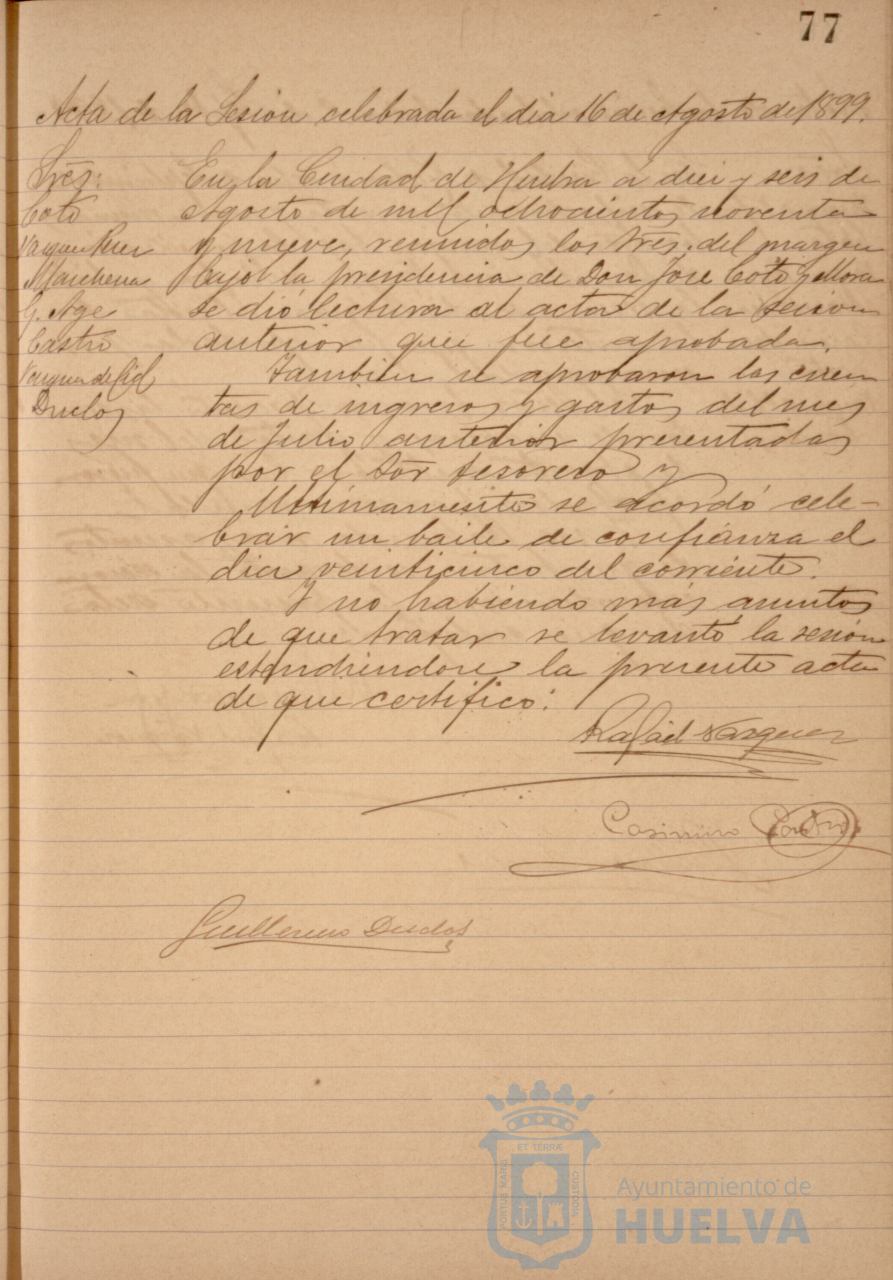 77
Acta de la Sesion celebrada el dia 16 de Agosto de 1899.
Sres:
Coto
Vazquez
Marchena
G. Age
Castro
Vazquez de Cid
Duclos
En la Ciudad de Huelva a diez y seis de
Agosto de mil ochocientos noventa
y nueve, reunidos los Sres. del margen
bajo la presidencia de Don José Coto y Mora
se dió lectura al acta de la sesion
anterior que fue aprobada.
Tambien se aprobaron las cuen
tas de ingresos y gastos del mes
de Julio anterior presentadas
por el Sor tesorero y
Ultimamente se acordó cele-
brar un baile de confianza el
dia veinticinco del corriente.
Y no habiendo más asuntos
de que tratar se levantó la sesión
estendiendose la presente acta
de que certifico:
Rafael Vazquez
Casimiro Castro
Guillermo Duclos
PORTUS MARIS
ET TERRÆ
CUSTODIA
Ayuntamiento de
HUELVA